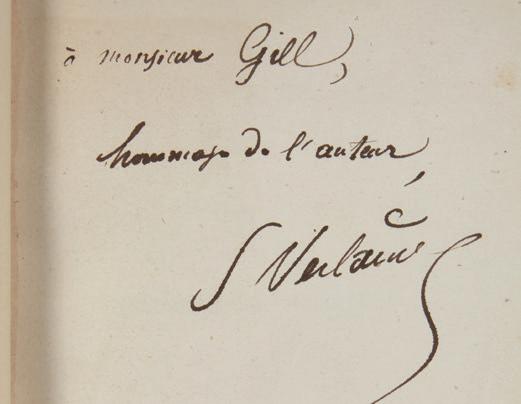 à monsieur Gill,
hommage de l'auteur,
P Verlaine